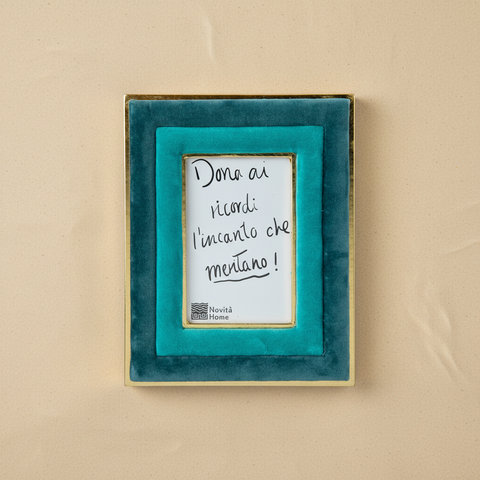 Dona ai
ricordi
l'incanto che
meritano!
Novità
Home